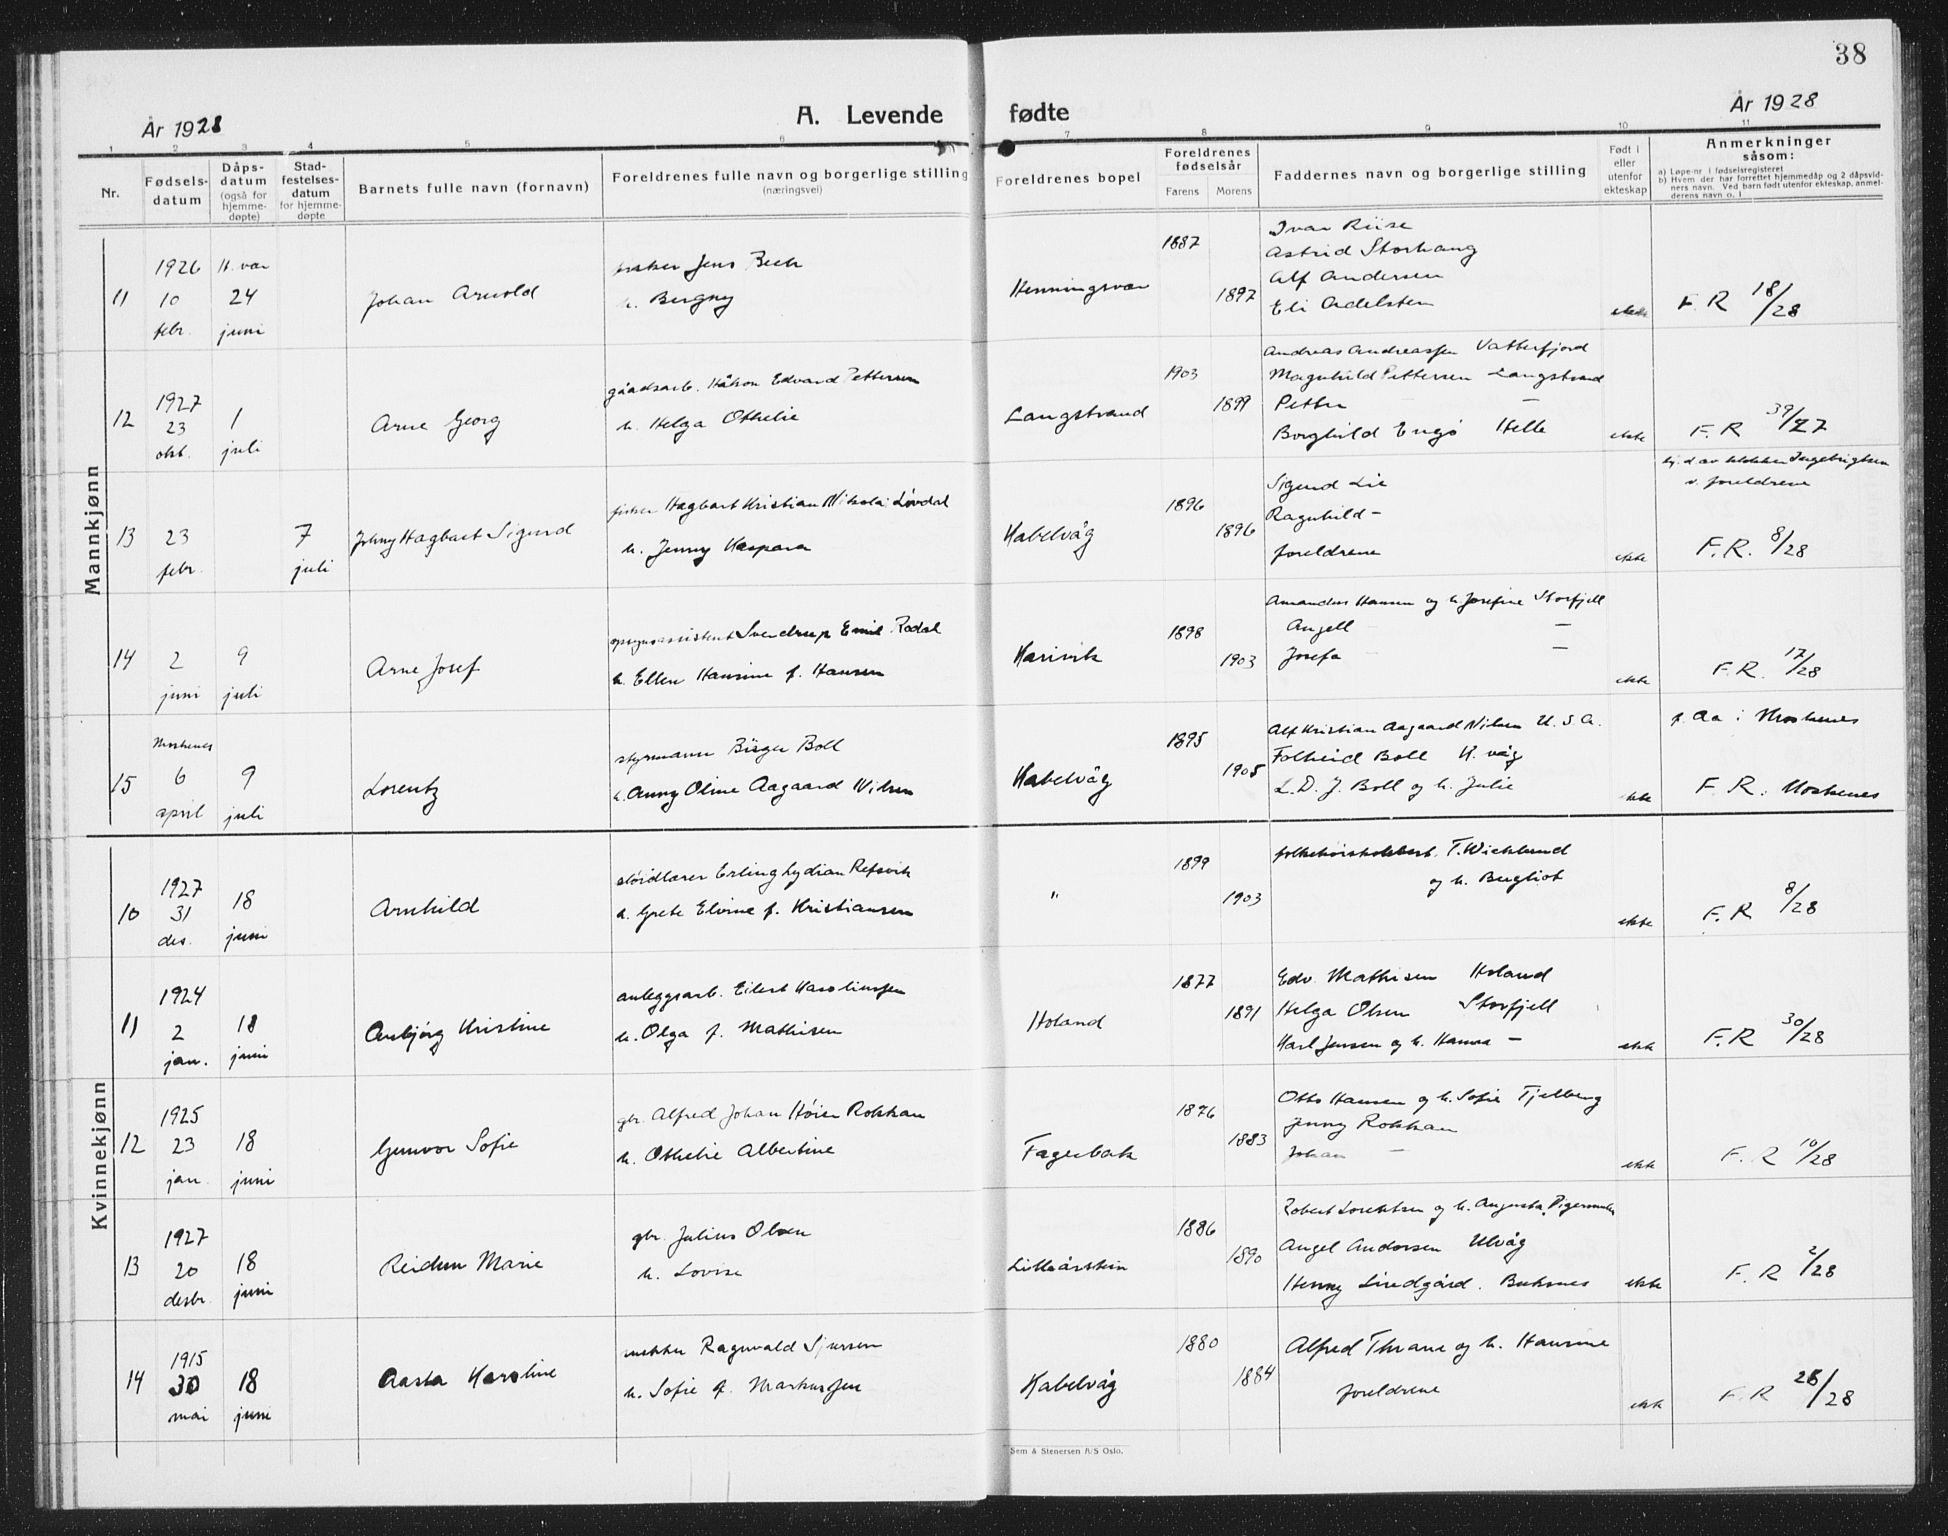 38
År 1928
A. Levende fødte
År 1928
1 2 3 4 5 6 7 8 9 10 11
Nr.
Fødsels-
datum
Dåps-
datum
(også for
hjemme-
døpte)
Stad-
festelses-
datum
for hjemme-
døpte
Barnets fulle navn (fornavn)
Foreldrenes fulle navn og borgerlige stilling
(næringsvei)
Foreldrenes bopel
Foreldrenes
fødselsår
Farens Morens
Faddernes navn og borgerlige stilling
Født i
eller
utenfor
ekteskap
Anmerkninger
såsom:
a) Løpe-nr i fødselsregisteret
b) Hvem der har forrettet hjemmedåp og 2 dåpsvid-
ners navn. Ved barn født utenfor ekteskap, anmel-
derens navn o. l
Mannkjønn
11
1926
10
febr.
H. vær
24
juni
Johan Arnold
Jens Beck
h. Bergny
Henningsvær
1887
1897
Ivar Riise
Astrid Storhaug
Alf Andersen
Eli Adelsten
ekte
F. R 18/28
12
1927
23
okt.
1
juli
Arne Georg
gårdsarb. Håkon Edvard Pettersen
h. Helga Othelie
Langstrand
1903
1899
Andreas Andreassen Vatterfjord
Magnhild Pettersen Langstrand
Petter — —
Borghild Engø Helle
ekte
F. R 39/27
13
23
febr.
7
juli
Johny Hagbart Sigurd
fisker Hagbart Kristian Nikolai Løvdal
h. Jenny Kaspara
Kabelvåg
1896
1896
Sigurd Lie
Ragnhild —
foreldrene
ekte
hj. d. av klokker Ingebrigtsen
v. foreldrene
F. R. 8/28
14
2
juni
9
juli
Arne Josef
Sverdrup Emil Rødal
h. Ellen Hansine f. Hansen
Harivik
1898
1903
Amandus Hansen og h. Josefine Storfjell
Angell — —
Josefa — —
ekte
F. R. 17/28
15
Moskenes
6
april
9
juli
Lorentz
styrmann Birger Boll
h. Anny Oline Aagaard Nilsen
Kabelvåg
1895
1905
Alf Kristian Aagaard Nilsen U. S. A.
Folkeid Boll K. våg
L. D. J. Boll og h. Julie
ekte
f. Aa i Moskenes
F. R. Moskenes
Kvinnekjønn
10
1927
31
des.
18
juni
Arnhild
sløidlærer Erling Lydian Refsvik
h. Grete Elvine f. Kristiansen
"
1899
1903
T. Wicklund
og h. Bergliot
ekte
F. R 8/28
11
1924
2
jan.
18
juni
Anbjørg Kristine
anleggsarb. Eilert Karoliussen
h. Olga f. Mathisen
Holand
1877
1891
Edv. Mathisen Holand
Helga Olsen Storfjell
Karl Jensen og h. Hanna —
ekte
F. R 30/28
12
1925
23
jan.
18
juni
Gunvor Sofie
gbr. Alfred Johan Höier Rokkan
h. Othelie Albertine
Fagerbakk
1876
1883
Otto Hansen og h. Sofie Tjelberg
Jenny Rokkan
Johan —
ekte
F. R 10/28
13
1927
20
desbr.
18
juni
Reidun Marie
gbr. Julius Olsen
h. Lovise
Lilleårstein
1886
1890
Robert Lorentzen og h. Augusta, Digermulen
Angel Andorsen Ulvåg
Henny Liredgård. Buksnes
ekte
F. R 2/28
14
1915
30
mai
18
juni
Aasta Karoline
snekker Ragnvald Sjursen
h. Sofie f. Markussen
Kabelvåg
1880
1884
Alfred Thrane og h. Hansine
foreldrene
ekte
F. R 28/28
Sem & Stenersen A/S Oslo.